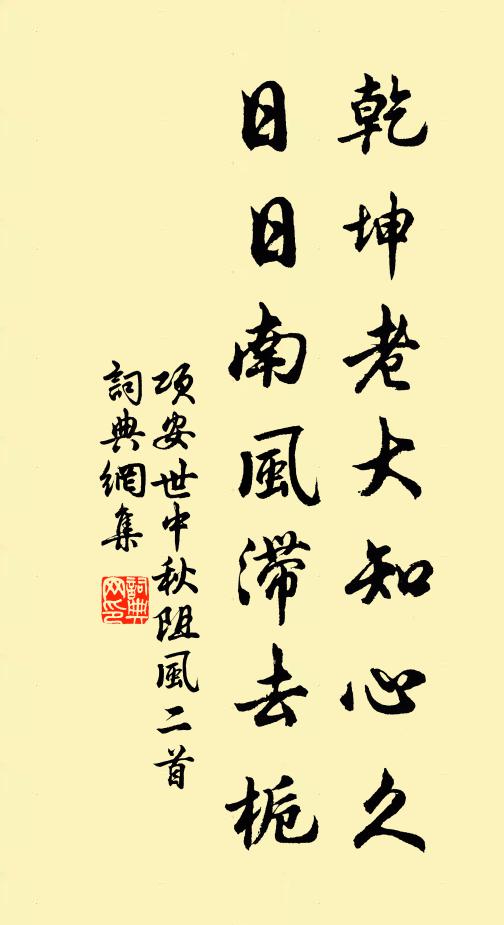 乾坤老大知心久
日日南風滯去栀
項安世中秋阻風二首
詞典網集
詞典
网印